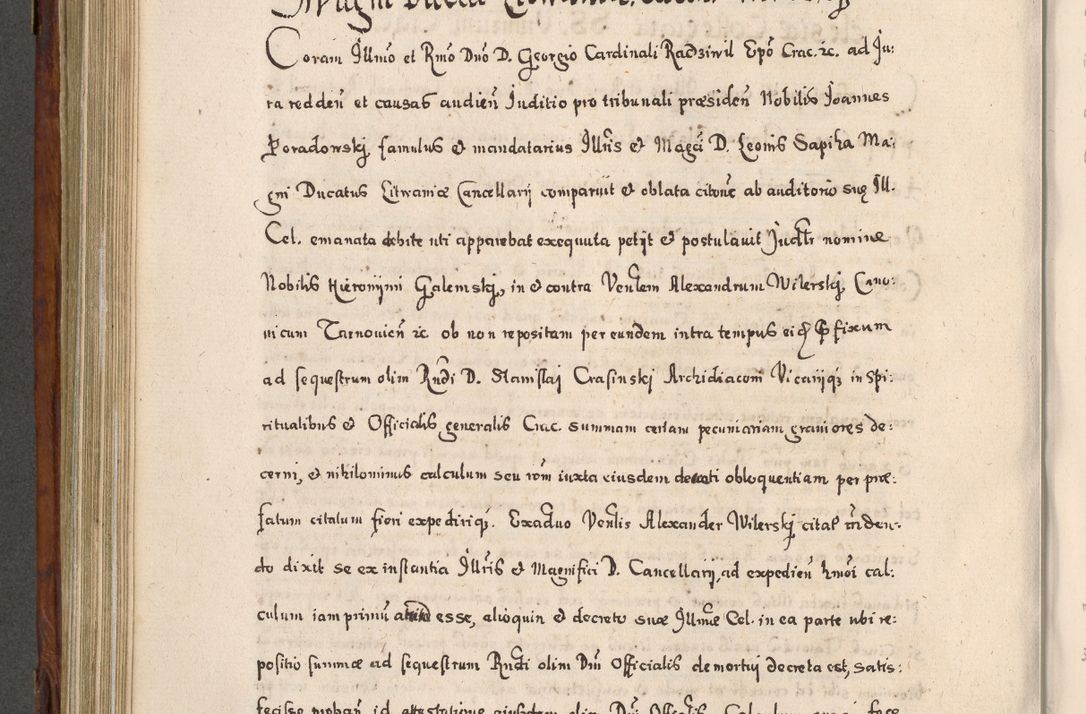 Magni Ducatus
Coram Illmo et Rmo Dno D. Georgio Cardinali Radziwil Epo Crac. ic. ad Ju:
ra redden et causas audien Juditio pro tribunali præsiden Nobilis Joannes
Poradowskj famulus et mandatarius Illris et Magci D. Leonis Sapiha Ma:
gni Ducatus Litwaniæ Cancellarij comparuit et oblata citone ab auditorio suę Ill.
Cel. emanata debite uti apparebat exequuta petijt et postulavit Judcti nomine
Nobilis Hieronijmi Galemskj, in et contra Venlem Alexandrum Wilerskj, Cano:
nicum Tarnovien ic ob non repositam per eundem intra tempus ei fixum
ad sequestrum olim Rndi D. Stanislaj Crasinskj Archidiaconi Vicarijq in Spi:
ritualibus et Officialis generalis Crac. summam certam pecuniariam graviores de:
cerni, et nihilominus calculum seu rom iuxta eiusdem decreti obloquentiam per præ:
fatum citatum fieri expediriq. Ex adverso Venlis Alexander Wilerskj citat9 rnden:
do dixit se ex instantia Illris et Magnifici D. Cancellarij, ad expedien hmoi cal:
culum iam primu esse, alioquin et decreto suæ Illmæ Cel. in ea parte ubi re:
positio summæ ad sequestrum Rndi olim Dni Officialis demortuj decreta est, satis:
fecisse proban id attestatione eiusdem olim Dni Officlis